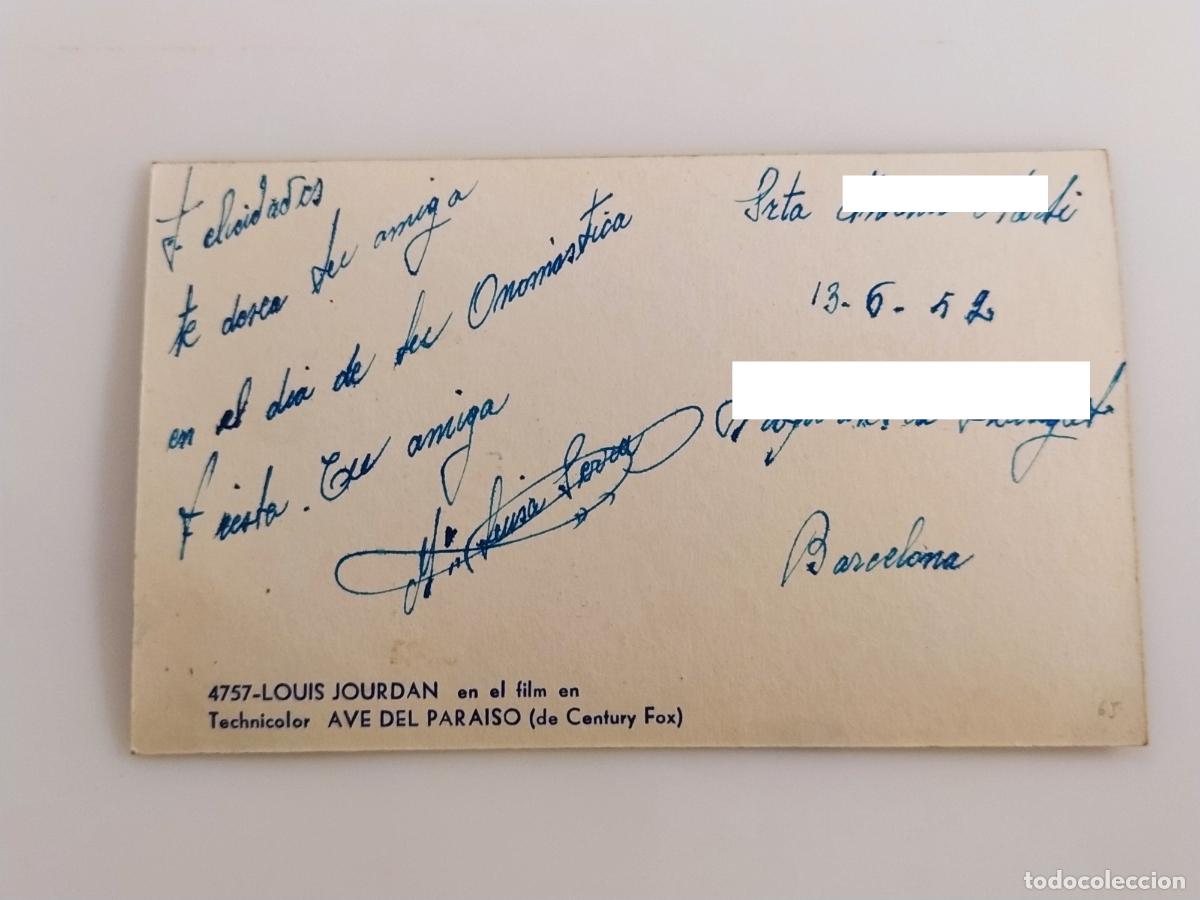 Felicidades
te desea tu amiga
en el dia de tu Onomástica
Fiesta. Tu amiga
Mª Luisa Serra
Srta
13-6-52
Barcelona
4757-LOUIS JOURDAN en el film en
Technicolor AVE DEL PARAISO (de Century Fox)
65
todocoleccion